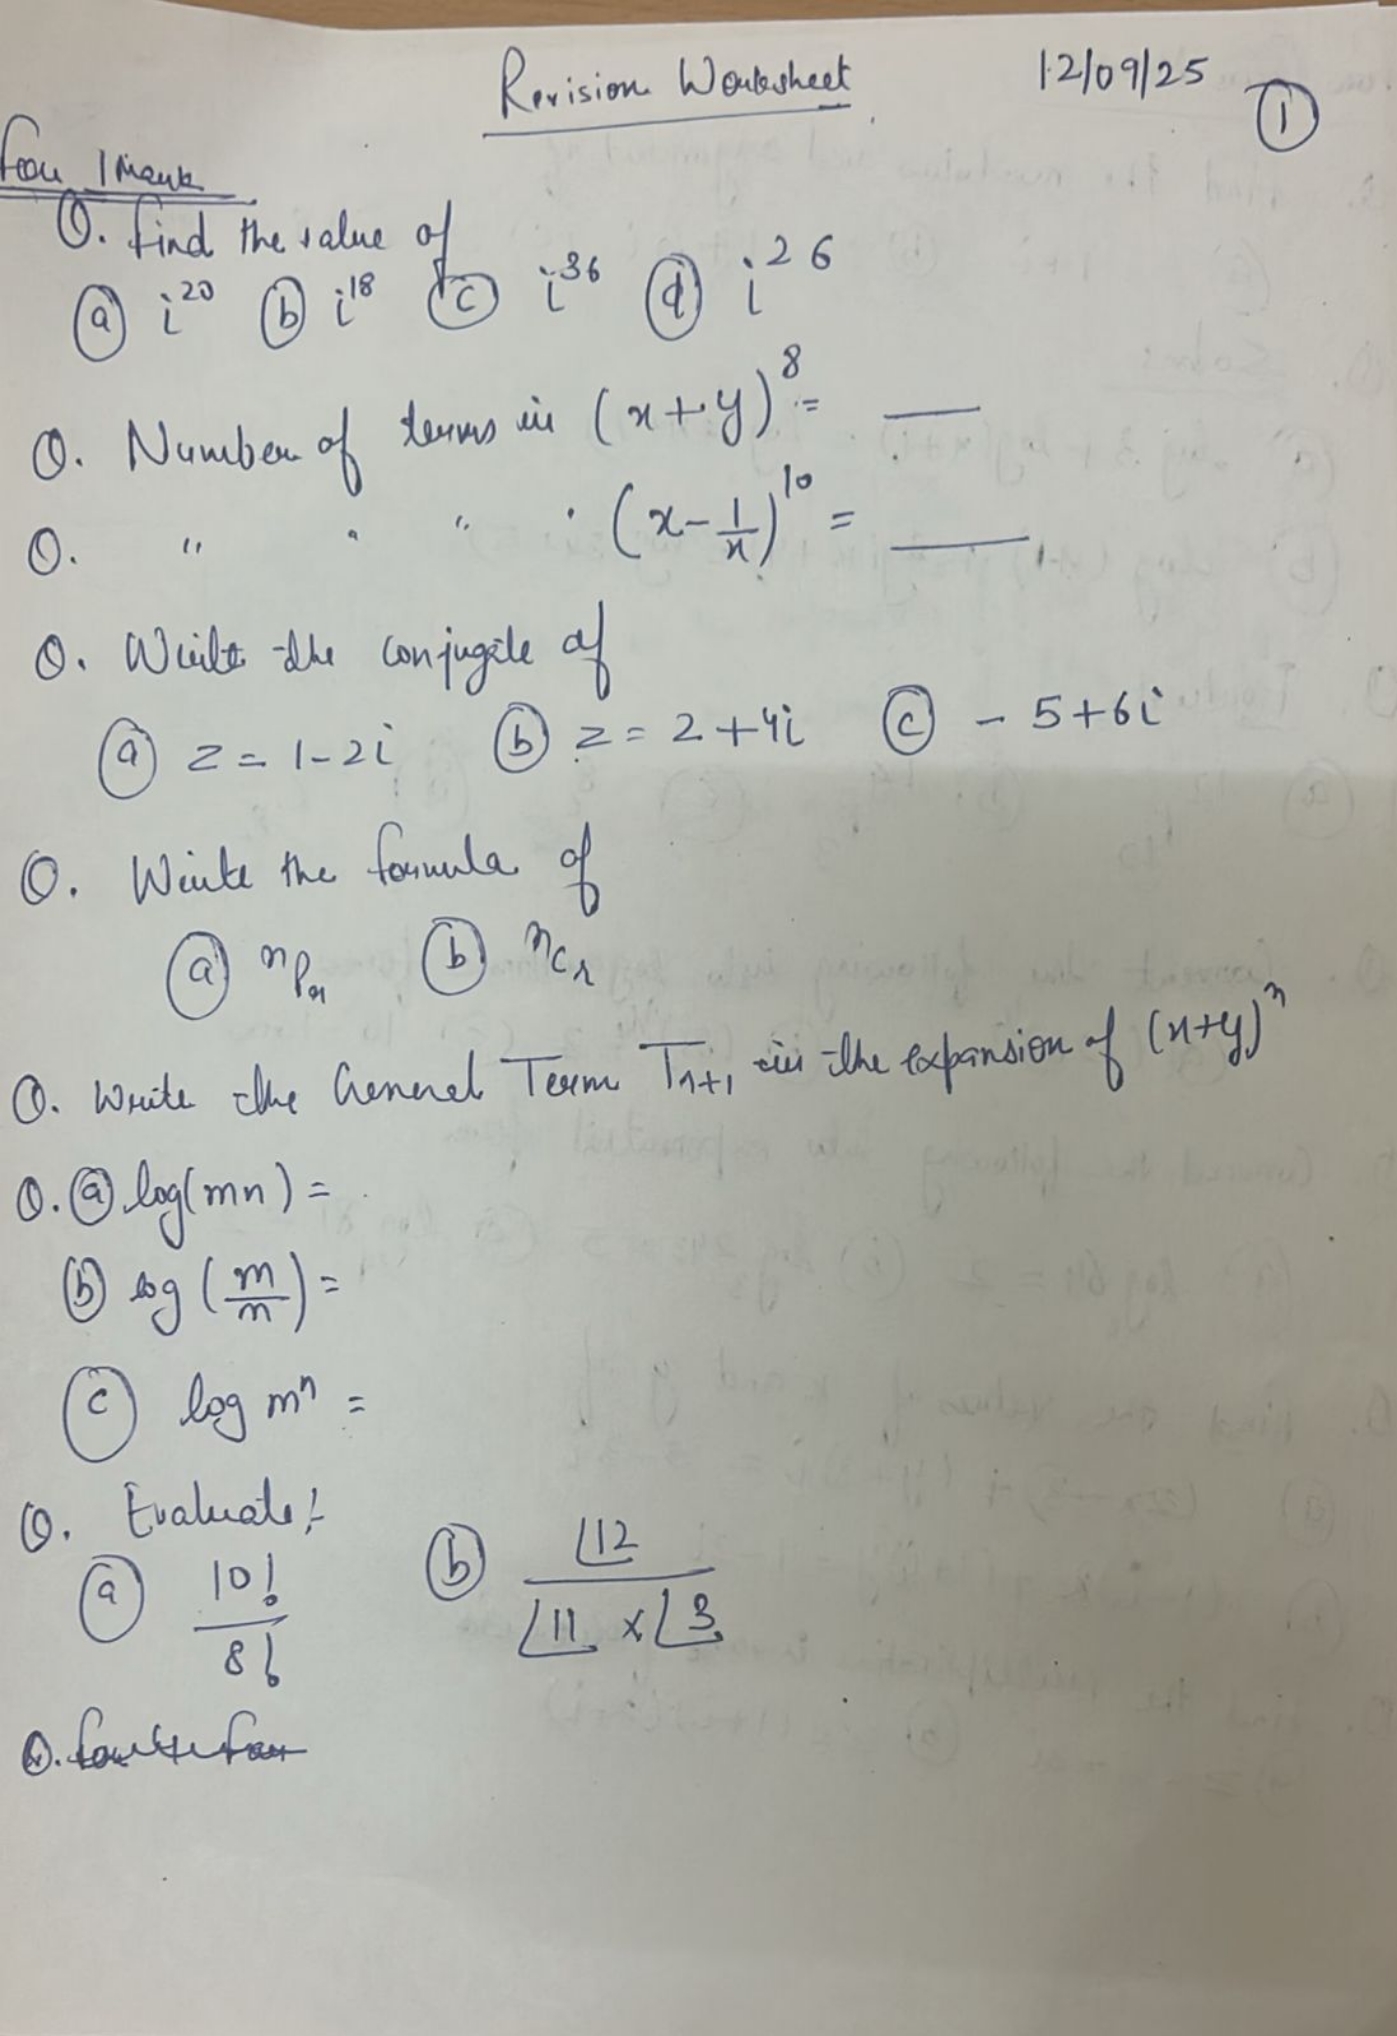 Revision Worksheet 12/09/25 ①
For 1 Mark
Q. find the value of
ⓐ i²⁰ ⓑ i¹⁸ ⓒ i³⁶ ⓓ i²⁶
Q. Number of terms in (x+y)⁸ = __
Q. " " " " (x-1/x)¹⁰ = __
Q. Write the conjugate of
ⓐ z = 1-2i ⓑ z = 2+4i ⓒ -5+6i
Q. Write the formula of
ⓐ ⁿPᵣ ⓑ ⁿCᵣ
Q. Write the General Term Tᵣ₊₁ in the expansion of (x+y)ⁿ
Q. ⓐ log(mn) =
ⓑ log (m/n) =
ⓒ log mⁿ =
Q. Evaluate:-
ⓐ 10!/8! ⓑ ⌊12/(⌊11 × ⌊3)
Q.